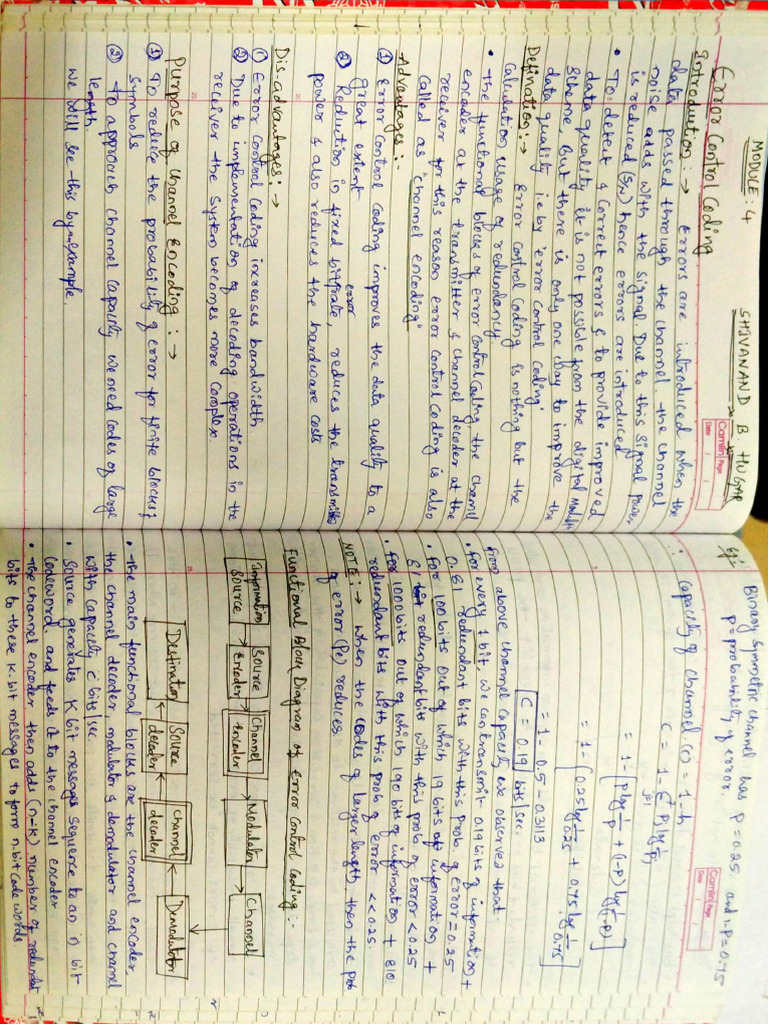 MODULE : 4
SHIVANAND B. HUGAR
Camlin Page
Date / /
Error Control Coding
Introduction :→ Errors are introduced when the
data passed through the channel. the channel
noise adds with the signal. Due to this signal power
is reduced (S/N) hence errors are introduced
• To detect & correct errors & to provide improved
data quality it is not possible from the digital Modulⁿ
scheme, but there is only one way to improve the
data quality i.e by 'error control coding'
Defination:→ Error control coding is nothing but the
calculation usage of redundancy
• the functional blocks of error control coding the channel
encoder at the transmitter & channel decoder at the
reciever for this reason error control coding is also
called as "channel encoding"
Advantages:-
① Error control coding improves the data quality to a
great extent
② Reduction in fixed bit error rate, reduces the transmitted
power & also reduces the hardware costs
Dis.advantages:→
① Error control coding increases bandwidth
② Due to implementation of decoding operations in the
receiver the system becomes more complex.
Purpose of channel Encoding :→
① To reduce the probability of error for finite blocks of
symbols
② To approach channel capacity we need codes of large
length
we will see this by example
Camlin Page
Date / /
Eg:- Binary Symmetric channel has P=0.25 and 1-P=0.75
P=probability of error.
∴ capacity of channel (c) = 1-h
C = 1- Σ Pj log (1/Pj)
j=1
= 1- [P log 1/P + (1-P) log (1/1-P)]
= 1- [0.25 log 1/0.25 + 0.75 log 1/0.75]
= 1- 0.5 - 0.3113
C = 0.19 bits/sec.
from above channel capacity we observed that.
• for every 1 bit, we can transmit 0.19 bits of information +
0.81 redundant bits with this prob. of error=0.25
• for 100 bits out of which 19 bits of information +
81 redundant bits with this prob of error < 0.25
• for 1000 bits out of which 190 bits of information + 810
redundant bits with this prob of error << 0.25.
NOTE:→ when the codes of larger length then the prob
of error (Pe) reduces
Functional Block Diagram of Error control coding:-
Information Source
Source Encoder
Channel encoder
Modulator
Channel
Destination
Source decoder
channel decoder
Demodulator
• the main functional blocks are the channel encoder,
the channel decoder, modulator & demodulator and channel
with capacity c bits/sec.
• Source generates K bit messages sequence to an n bit
codeword. and feeds it to the channel encoder
• the channel encoder then adds (n-k) number of redundant
bits to these k.bit messages to form n.bit code words